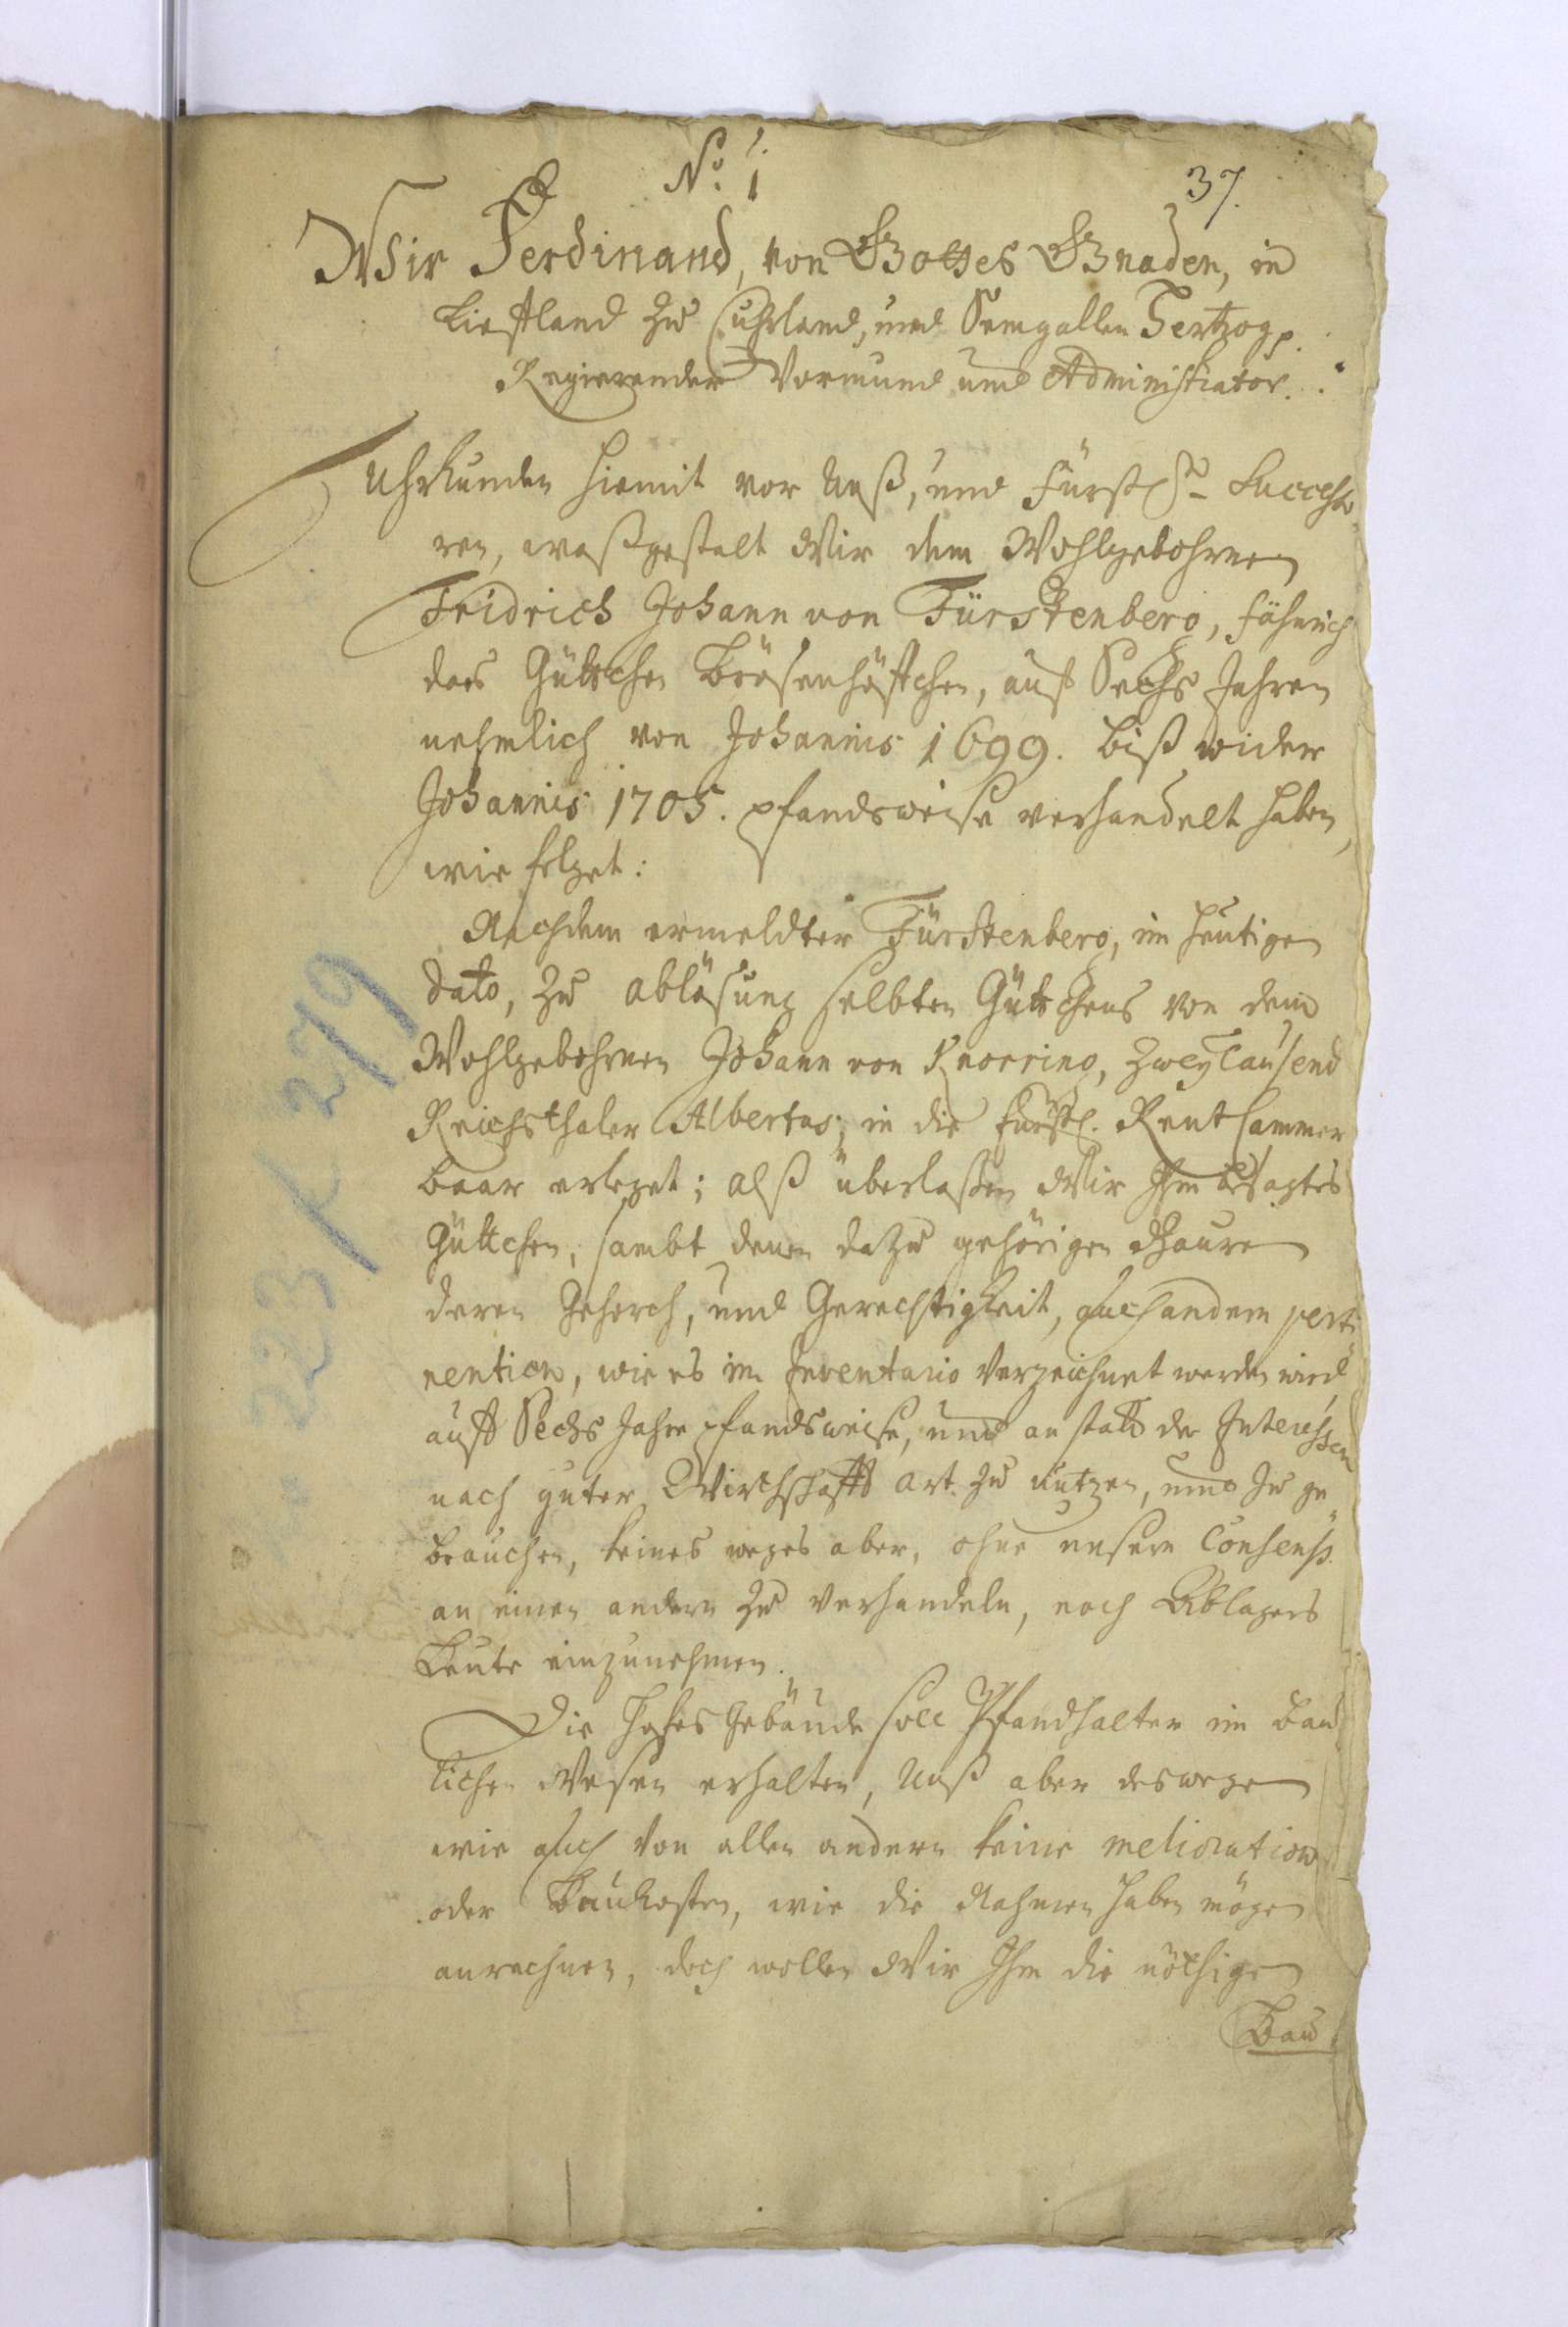 No. 1.
37.
Wir Ferdinand, von Gottes Gnaden, in
Liefland zu Cuhrland, und Semgallen Hertzog p.
Regierender Vormund und Administrator.
Uhrkunden hiemit vor Unß, und Fürstl. Successo
ren, waßgestalt Wir dem Wohlgebohrnen
Fridrich Johann von Fürstenberg, Fähnrich
das Güttchen Bräsenhöffchen, auf Sechs Jahren
nehmlich von Johannis 1699. biß wider
Johannis 1705. pfandsweise verhandelt haben,
wie folget:
Nachdem ermeldter Fürstenberg, im heutigen
dato, zu ablösung selbten Güttchens von dem
Wohlgebohrnen Johann von Knorring, Zwey Tausend
Reichsthaler Albertus, in die Fürstl. Rent Cammer
baar erleget; alß überlaßen Wir Ihm besagtes
Güttchen, sambt denen dazu gehörigen Bauren
deren Gehorch, und Gerechtigkeit, auch andern perti
nention, wie es im Inventario Verzeichnet werden wird
auff Sechs Jahre pfandsweise, und an statt der Interessen
nach guter Wirthschafft art zu nutzen, und zu ge
brauchen, keines weges aber, ohne unsern Consenß
an einen andern zu verhandeln, noch Ablagers
Leute einzunehmen.
Die Hofes Gebäude soll Pfandhalter im bau
lichen Wesen erhalten, Unß aber deswegen
wie auch von allen andern keine melioration
oder Baukosten, wie die Nahmen haben mögen
anrechnen, doch wollen Wir Ihm die nöthigen
Bau
223 / 279